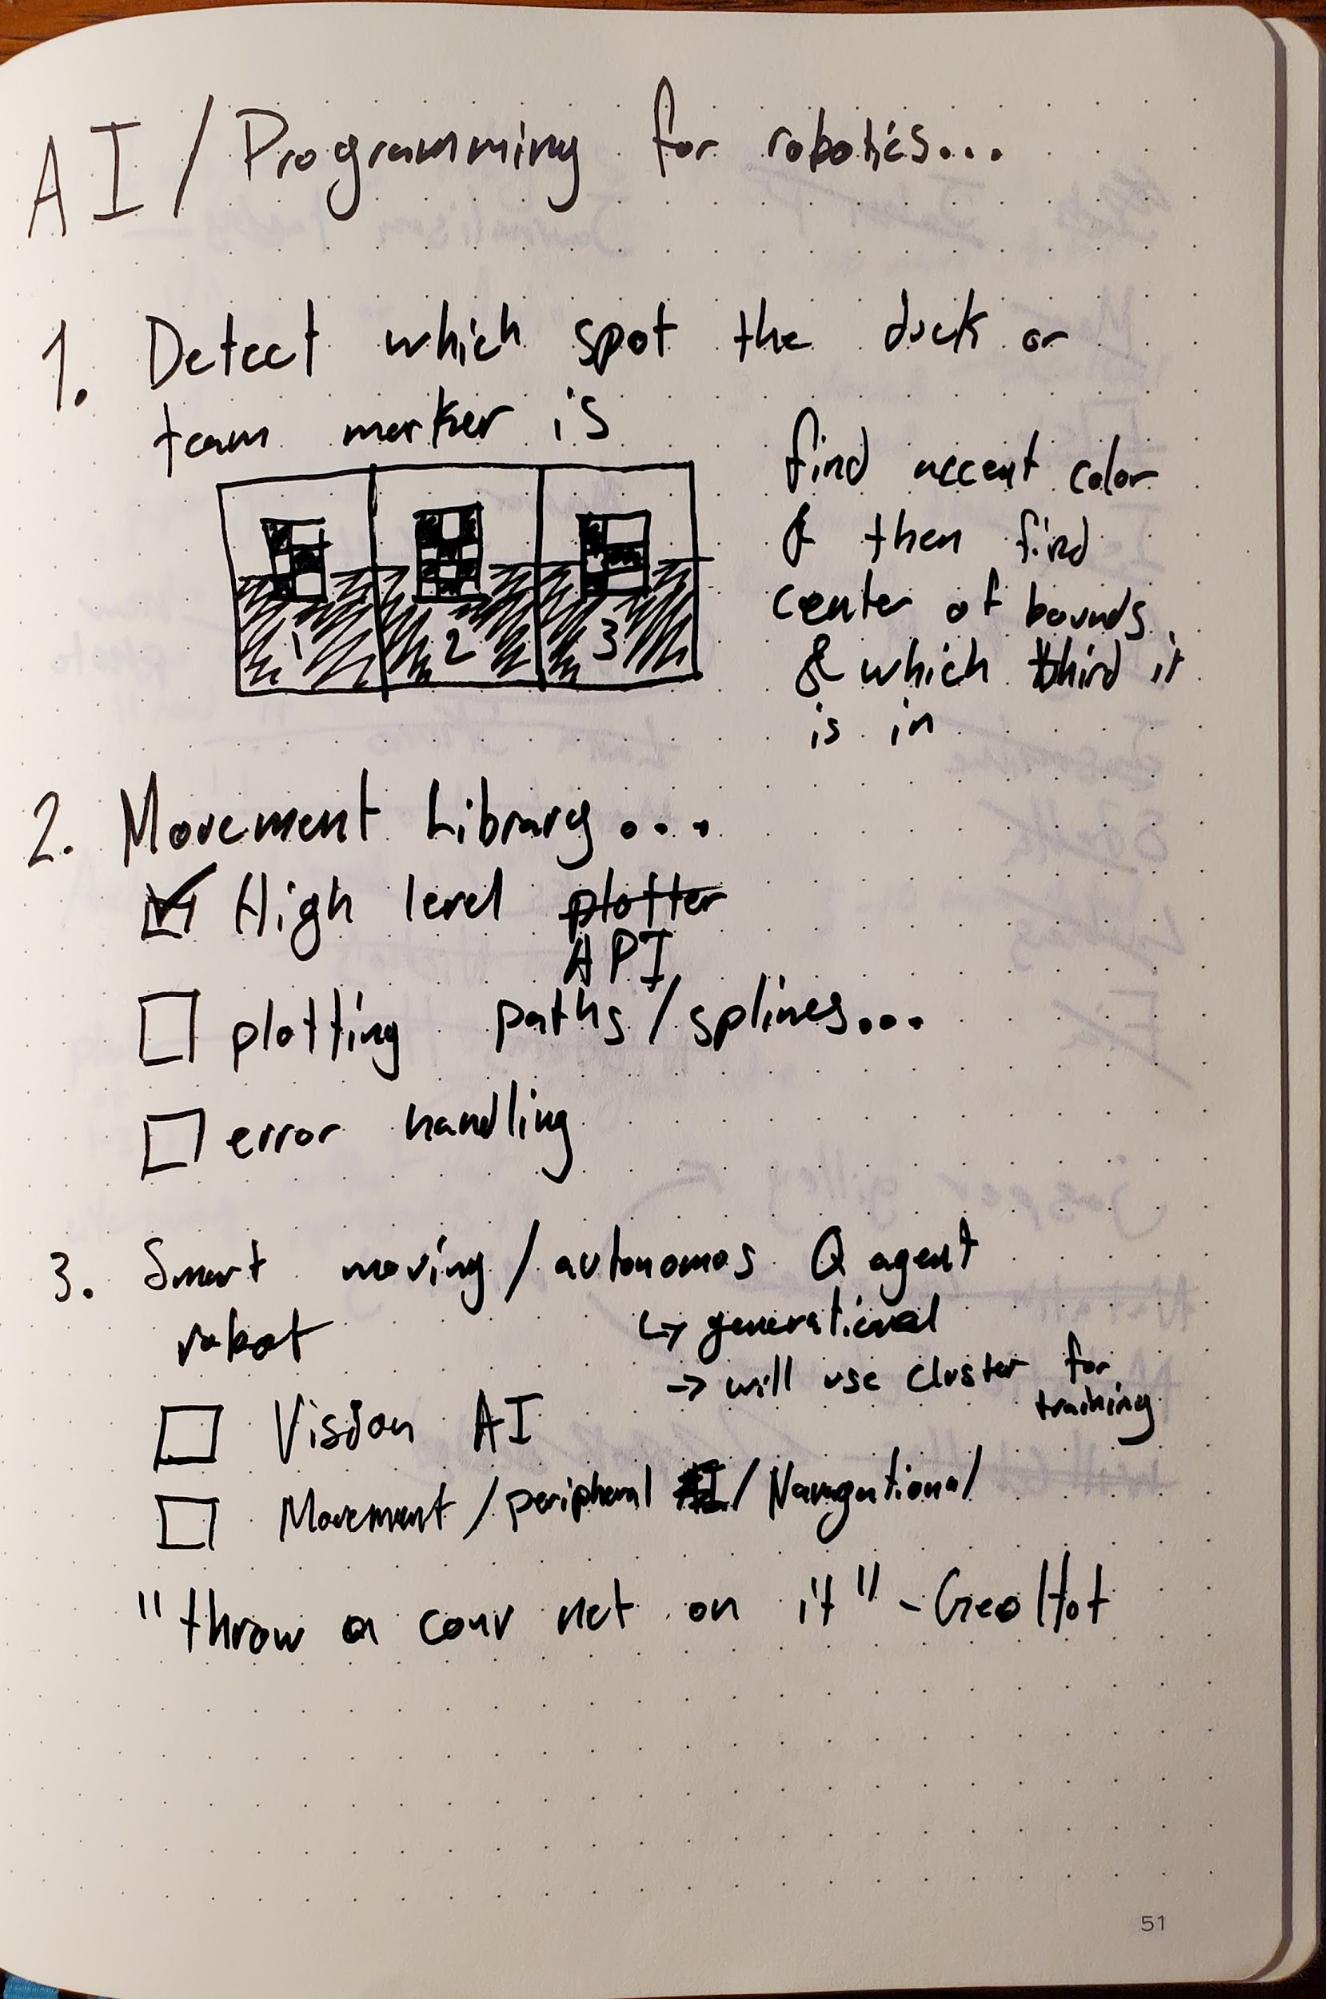 AI / Programming for robotics...
1. Detect which spot the duck or
team marker is
1 2 3
find accent color
& then find
center of bounds
& which third it
is in
2. Movement Library...
High level plotter
API
plotting paths/splines...
error handling
3. Smart moving/autonomos Q agent
robot
↳ generational
→ will use cluster for
training
Vision AI
Movement/peripheral AI/Navigational
"throw a conv net on it" - GeoHot
51